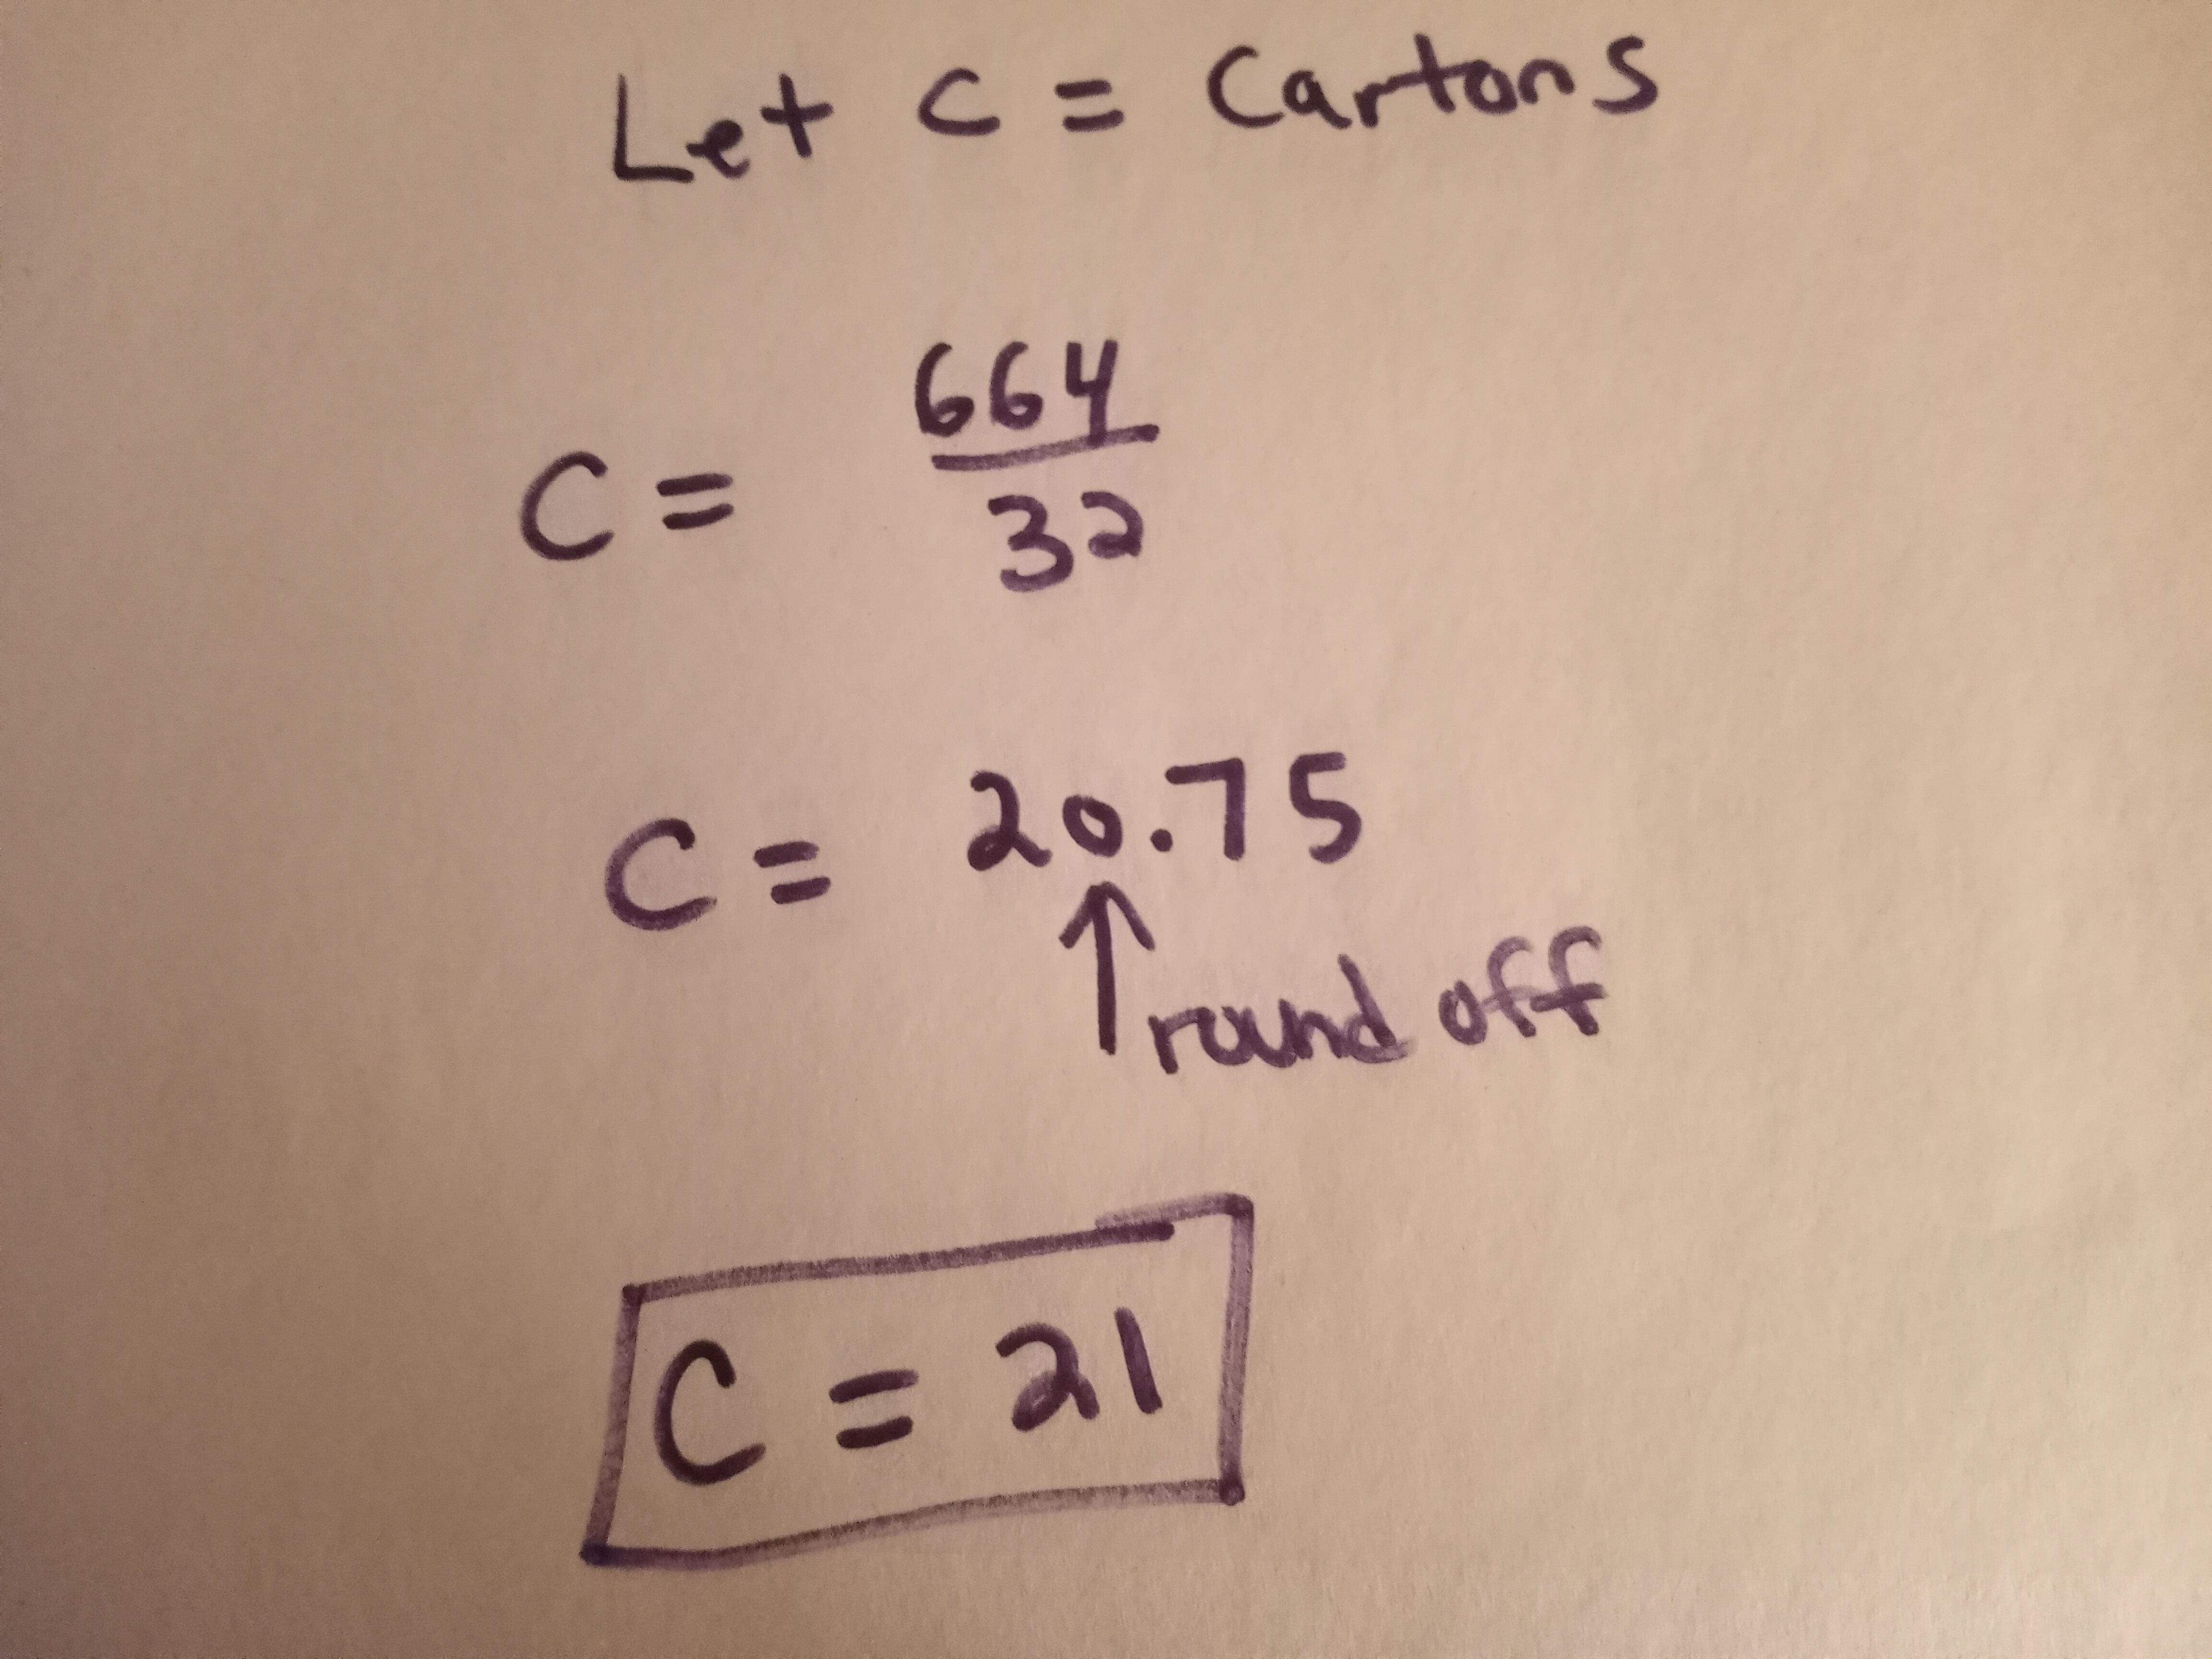 Let C = Cartons
C = 664/32
C = 20.75
↑ round off
C = 21